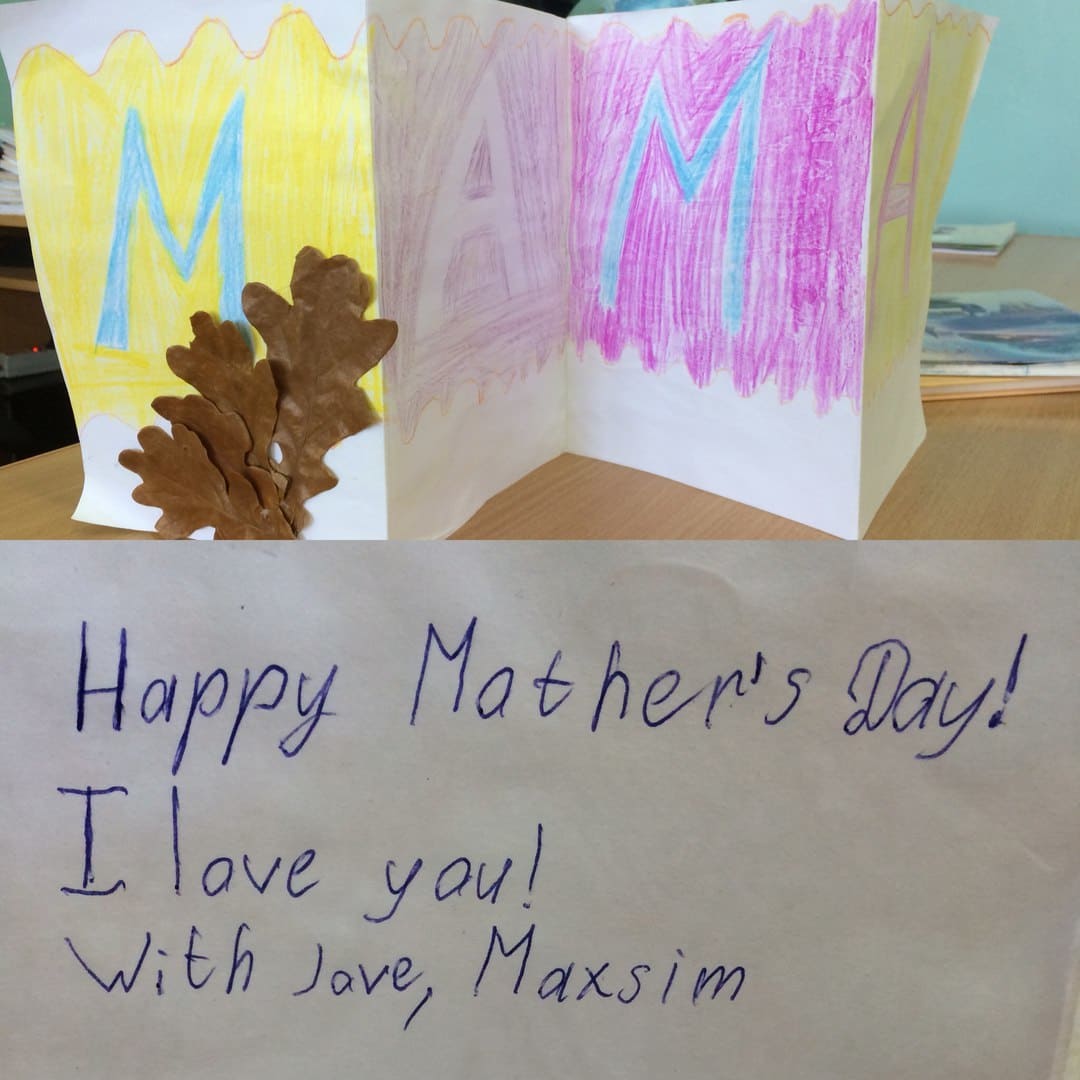 МАМА
Happy Mother's Day!
I love you!
With love, Maxsim